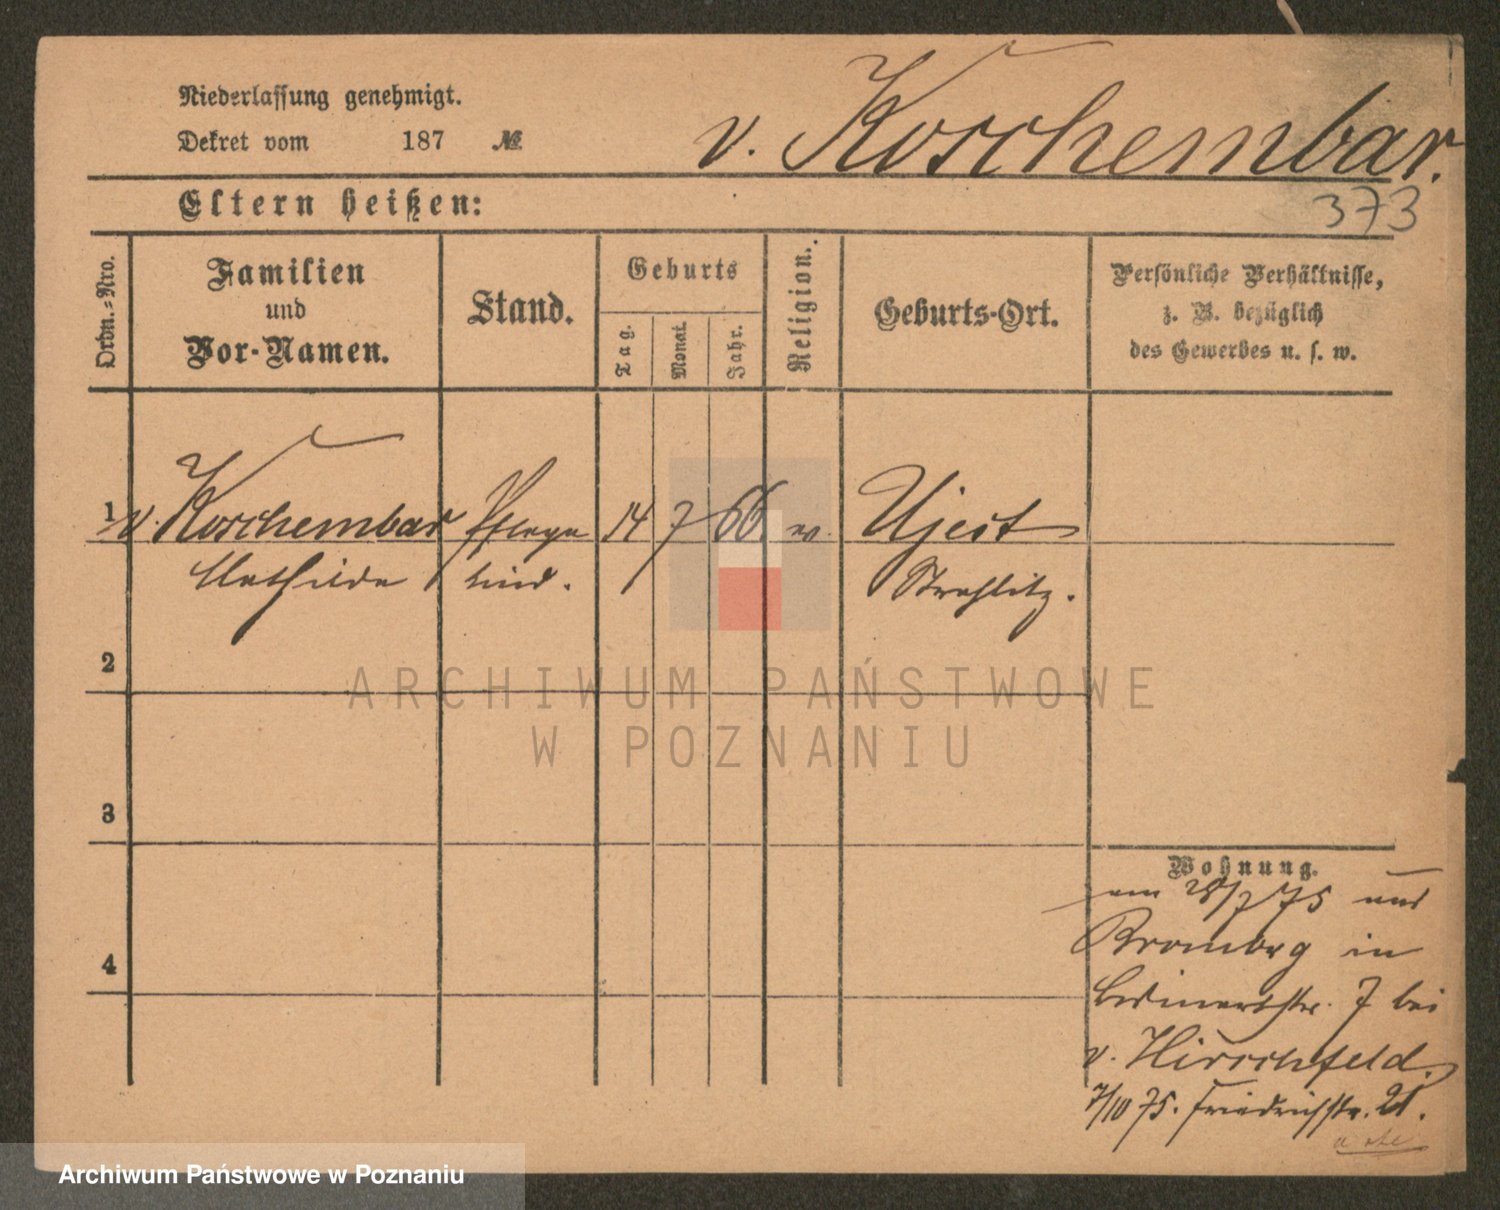 Niederlassung genehmigt.
Dekret vom 187 №
v. Koschembar.
373
Eltern heißen:
Ordn.-Nro.
Familien
und
Vor-Namen.
Stand.
Geburts
Tag.
Monat.
Jahr.
Religion.
Geburts-Ort.
Persönliche Verhältnisse,
z. B. bezüglich
des Gewerbes u. s. w.
1 v. Koschembar Pflege 14 7 66. Ujest
Mathilde kind. Strehlitz.
2
3
4
Wohnung.
28/7 75
Bromberg in
Bismarckstr. 7 bei
v. Hirschfeld.
7/10 75. Friedrichstr. 21.
ARCHIWUM PAŃSTWOWE
W POZNANIU
Archiwum Państwowe w Poznaniu